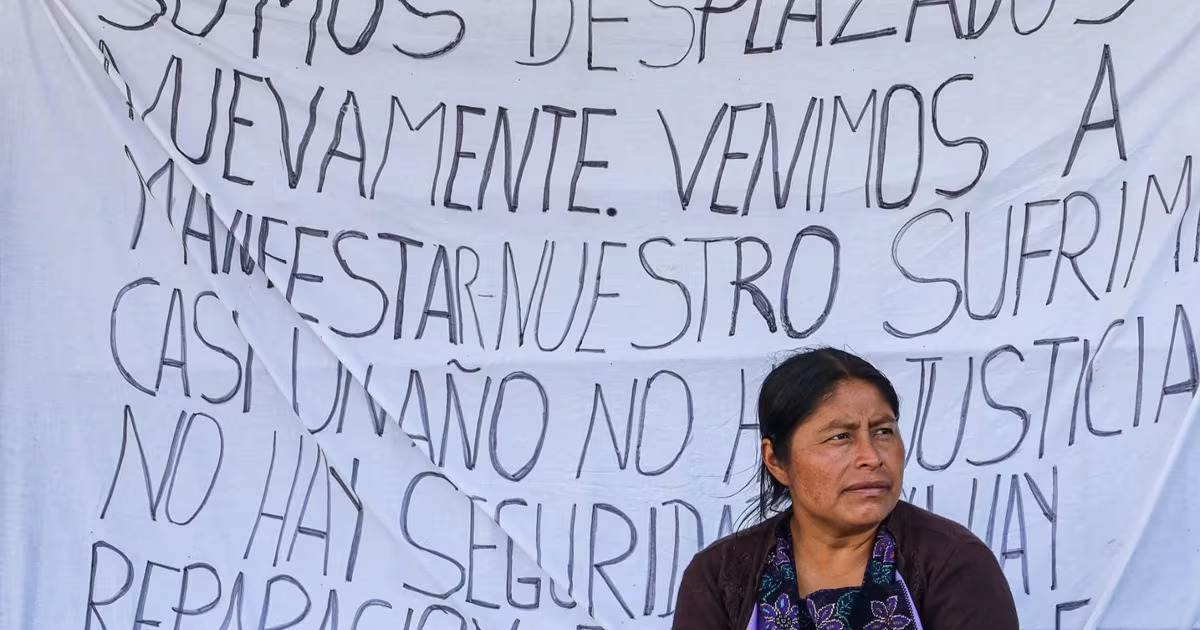 SOMOS DESPLAZADOS
NUEVAMENTE. VENIMOS A
MANIFESTAR-NUESTRO SUFRIM
CASI UN AÑO NO JUSTICIA
NO HAY SEGURIDA HAY
REPARACIO